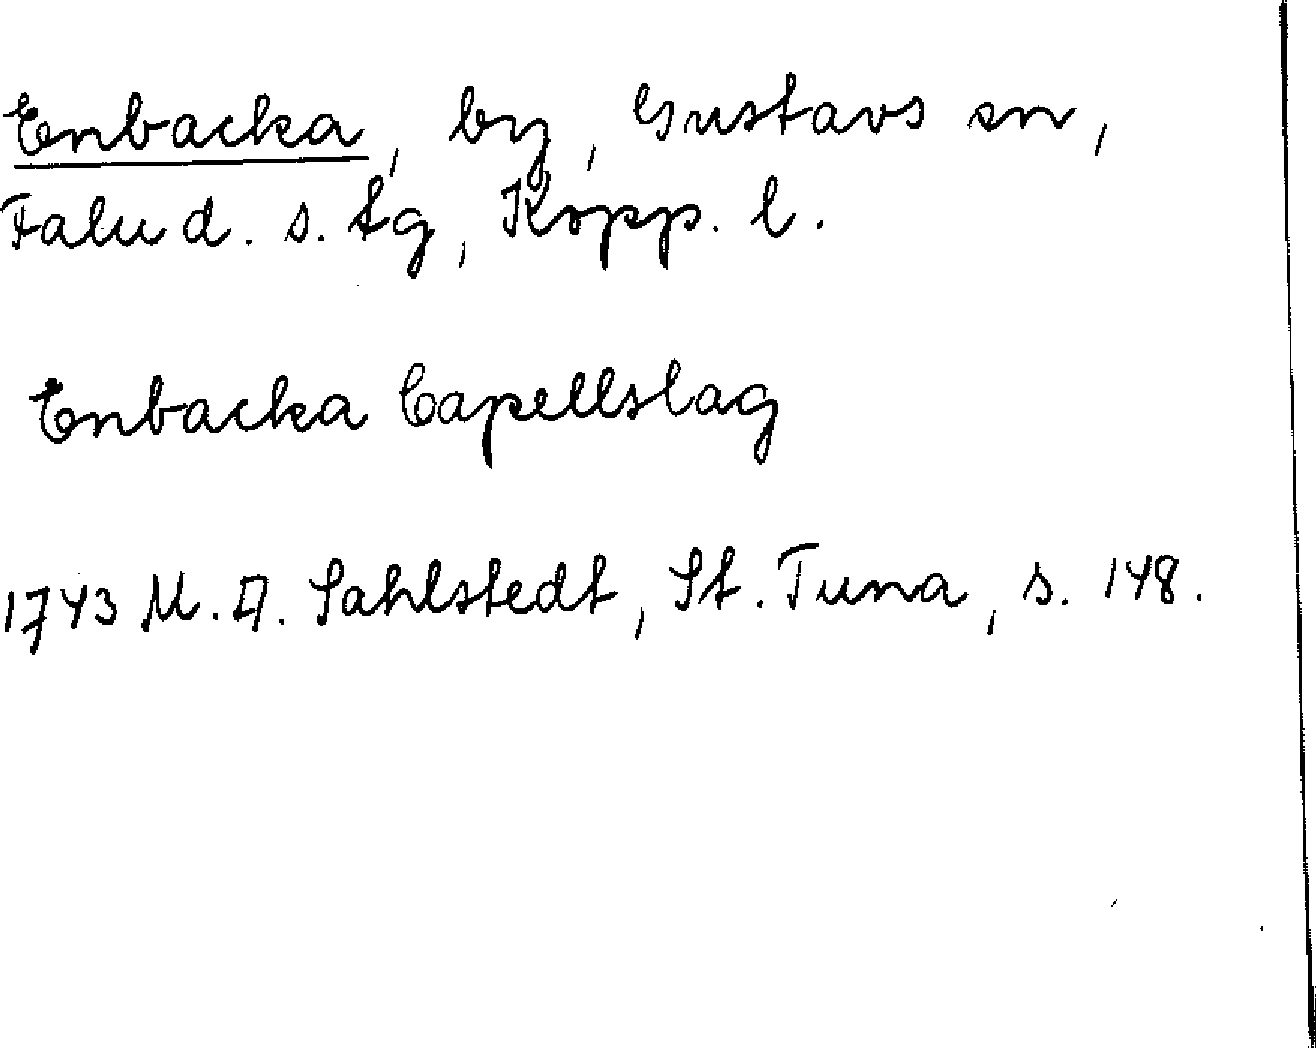 Enbacka, by, Gustavs sn,
Falu d. s. tg, Kopp. l.
Enbacka Capellslag
1743 M. A. Sahlstedt, St. Tuna, s. 148.